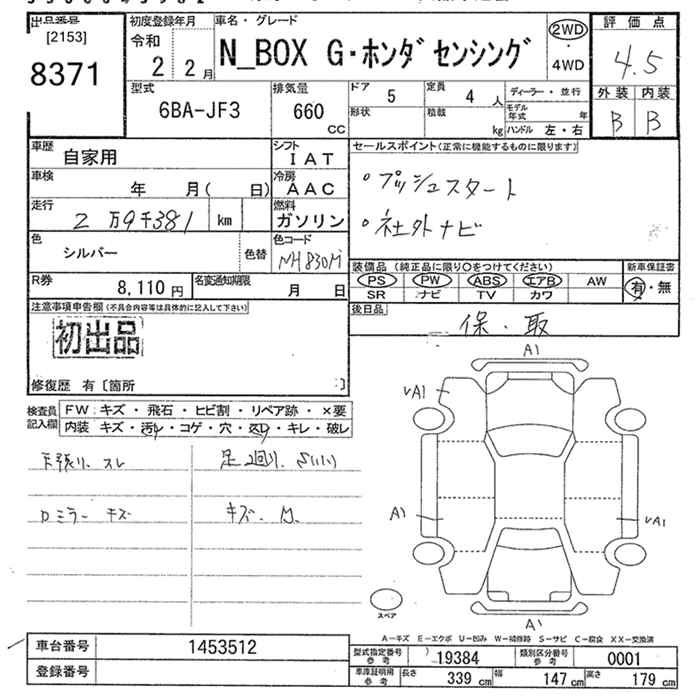 出品番号
[2153]
8371
初度登録年月
令和
2 2月
車名・グレード
N_BOX G・ホンダセンシング
2WD
・
4WD
評価点
4.5
外装 内装
B B
型式
6BA-JF3
排気量
660
CC
ドア 5
定員 4 人
形状
積載 kg
ディーラー・並行
モデル年式 年
ハンドル 左・右
車歴 自家用
シフト IAT
車検 年 月( 日)
冷房 AAC
走行 2万9千381 km
燃料 ガソリン
色 シルバー 色替
色コード NH830M
R券 8,110円
名変通知期限 月 日
セールスポイント(正常に機能するものに限ります)
・プッシュスタート
・社外ナビ
装備品(純正品に限り○をつけてください)
PS PW ABS エアB AW
SR ナビ TV カワ
新車保証書
有・無
後日品
保・取
注意事項申告欄(不具合内容等は具体的に記入して下さい)
初出品
修復歴 有〔箇所 〕
検査員記入欄
FW:キズ・飛石・ヒビ割・リペア跡・×要
内装 キズ・汚レ・コゲ・穴・スレ・キレ・破レ
天張り、スレ
足2回り、
ロミラー キズ
キズ・
A1
√A1
A1
√A1
A1
スペア
A―キズ E―エクボ U―凹み W―補修跡 S―サビ C―腐食 XX―交換済
車台番号 1453512
登録番号
型式指定番号参考 19384
類別区分番号参考 0001
車庫証明用参考
長さ 339 cm
幅 147 cm
高さ 179 cm